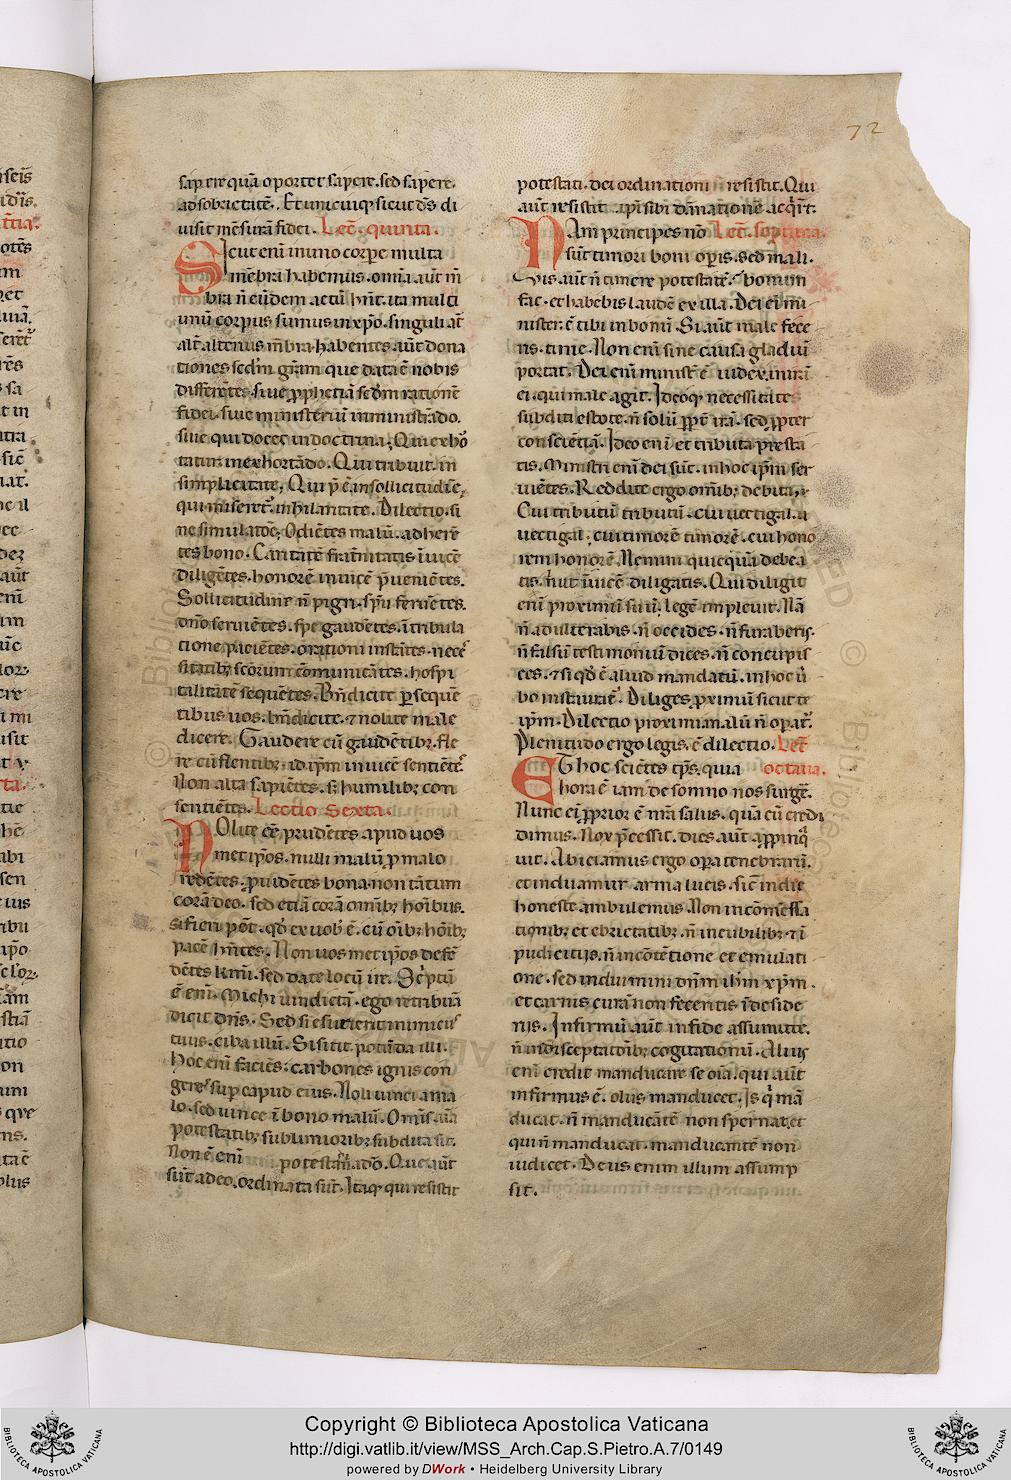 72
sapere quā oportet sapere. sed sapere.
ad sobrietatē. Et unicuiq; sicut dš di
uisit mēsurā fidei. Lect̄. quinta.
Sicut enī in uno corpe multa
mēbra habemus. omīa aūt m̄
bra n̄ eūdem actū hn̄t. ita multi
unū corpus sumus in xp̄o. singuli aūt
alt̄ alterius m̄bra. habentes aūt dona
tiones sedm̄ gr̄am que data ē nobis
differētes. siue p̄phetiā sedm̄ rationē
fidei. siue ministeriū in ministrādo.
siue qui docet in doctrina; Qui exho
tatur in exhortādo. Qui tribuit. in
simplicitate; Qui p̄ ē in sollicitudīe;
qui miseret̄. in hilaritate. Dilectio. si
ne simulatōe; Odiētes malū. adhere
tes bono. Caritatē fr̄atnitatis ī uicē
diligētes. honorē inuicē p̄uenientes.
Sollicitudine n̄ pigri. sp̄u feruētes.
dn̄o seruiētes. spe gaudētes. ī tribula
tione paciētes. orationi instātes. necē
sitatib; scōrum cōmunicātes. hospi
talitatē sequētes. Bn̄dicite psequē
tibus uos. bn̄dicite. ⁊ nolite male
dicere. Gaudere cū gaudētib;. fle
re cū flentib;. id ip̄m inuicē sentiētē.
Non alta sapiētes. S; humilib; con
sentiētes. Lectio Sexta.
Nolite eē prudētes apud uos
met ip̄os. nulli malū p̄ malo
redētes. p̄uidētes bona. non tātum
corā deo. sed etiā corā omīb; hoībus.
si fieri pōt. qd̄ ex uob̄ ē. cū oīb; hōīb;
pacē hn̄tes. Non uos met ip̄os defē
dētes kmī. sed date locū ire. Sc̄ptū
ē enī. Michi uindictā. ego retribuā
dicit dn̄s. Sed si esurierit inimicus
tuus. ciba illū. Si sitit. potū da illi.
Hoc enī faciēs: carbones ignis con
geres sup capud eius. Noli uinci a ma
lo. sed uince ī bono malū. Omīs aīa
potestatib; sublimiorib; subdita sit.
Non ē enī potestas n̄ a dō. Que aūt
sūt a deo. ordinata sūt. Itaq; qui resistit
potestati. dei ordinationi resistit. Qui
aūt resistūt ip̄i sibi dānationē acq̄rūt.
Nam principes nō Lect̄. septima.
sūt timori boni opis. sed mali.
Vis aūt n̄ timere potestatē. bonum
fac. et habebis laudē ex illa. Dei eī mi
nister ē tibi in bonū. Si aūt male fece
ris. time. Non enī sine causa gladiū
portat. Dei enī minist̄ ē uidex. in irā
ei. qui male agit. Ideoq; necessitate
subditi estote. n̄ solū ppt̄ irā. sed ppter
conscientiā. Ideo enī et tributa presta
tis. Ministri enī dei sūt. in hoc ip̄m ser
uiētes. Reddite ergo omīb; debita.
Cui tributū tributū. cui uectigal. u
uectigal. cui timorē timorē. cui hono
rem honorē. Nemini quicquā debea
tis. nisi ut īuicē diligatis. Qui diligit
enī proximū suū. legē impleuit. Nā
n̄ adulterabis. n̄ occides. n̄ furaberis.
n̄ falsū testimoniū dices. n̄ concupis
ces. ⁊ si qd̄ ē aliud mandatū. in hoc ū
bo instauratē. Diliges proximū sicut te
ip̄m. Dilectio proximi. malū n̄ opat̄.
Plenitudo ergo legis. ē dilectio. Lect̄
Et hoc sciētes tp̄s. quia octaua.
hora ē iam de somno nos surgē.
Nunc eī pprior ē nr̄a salus. quā cū credi
dimus. Nox p̄cessit. dies aūt appinq̄
uit. Abiciamus ergo opa tenebrarū.
et induamur arma lucis. sic in die
honeste ambulemus. Non in cōmessa
tionib; et ebrietatib;. n̄ in cubilib; ⁊ ī
pudicitijs. n̄ in cōtētione et emulati
one. sed induimini dn̄m ih̄m xp̄m.
et carnis curā non feceritis ī deside
rijs. Infirmū aūt in fide assumite.
n̄ in disceptatōib; cogitationū. Alius
enī credit manducare se oīa. qui aūt
infirmus ē. olus manducet. Is q̄ mā
ducat. n̄ manducātē non spernat. et
qui n̄ manducat. manducantē non
iudicet. Deus enim illum assump
sit.
Copyright © Biblioteca Apostolica Vaticana
http://digi.vatlib.it/view/MSS_Arch.Cap.S.Pietro.A.7/0149
powered by DWork • Heidelberg University Library
BIBLIOTECA APOSTOLICA VATICANA
BIBLIOTECA APOSTOLICA VATICANA